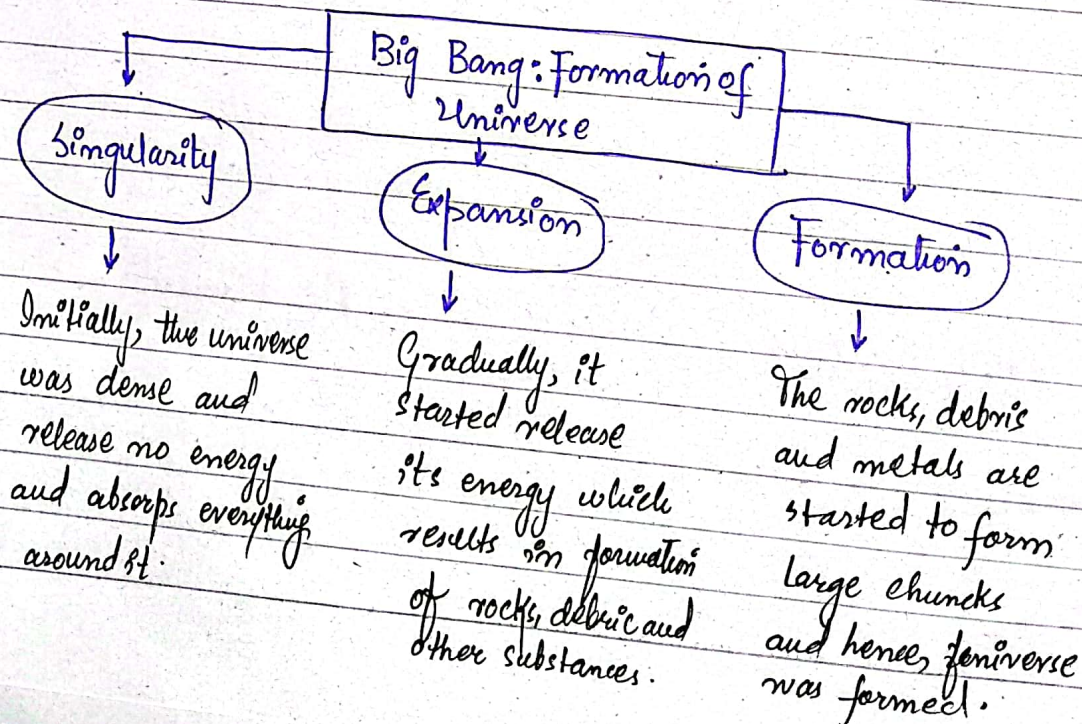 Big Bang: Formation of
Universe
Singularity
Expansion
Formation
Initially, the universe
was dense and
release no energy
and absorps everything
around it.
Gradually, it
started release
its energy which
results in formation
of rocks, debric and
other substances.
The rocks, debris
and metals are
started to form
large chuncks
and hence, universe
was formed.